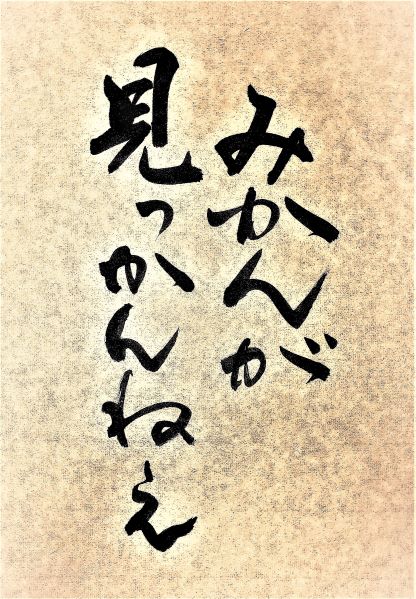 みかんが
見っかんねぇ